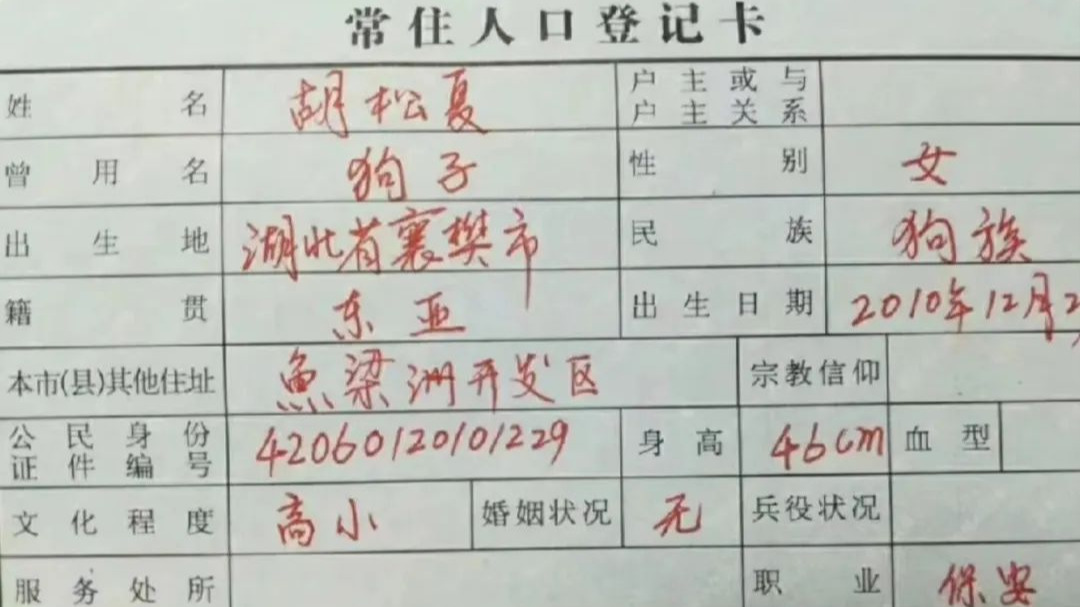 常住人口登记卡
姓名 胡松夏 户主或与户主关系
曾用名 狗子 性别 女
出生地 湖北省襄樊市 民族 狗族
籍贯 东亚 出生日期 2010年12月2
本市(县)其他住址 鱼梁洲开发区 宗教信仰
公民身份证件编号 42060120101229 身高 46cm 血型
文化程度 高小 婚姻状况 无 兵役状况
服务处所 职业 保安